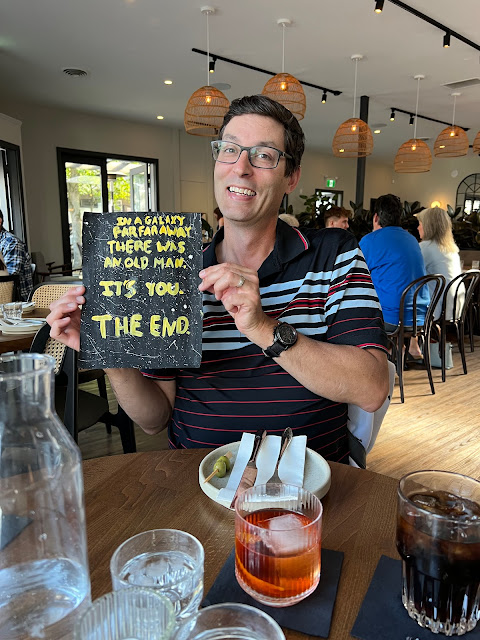 IN A GALAXY
FAR FAR AWAY
THERE WAS
AN OLD MAN.
IT'S YOU.
THE END.